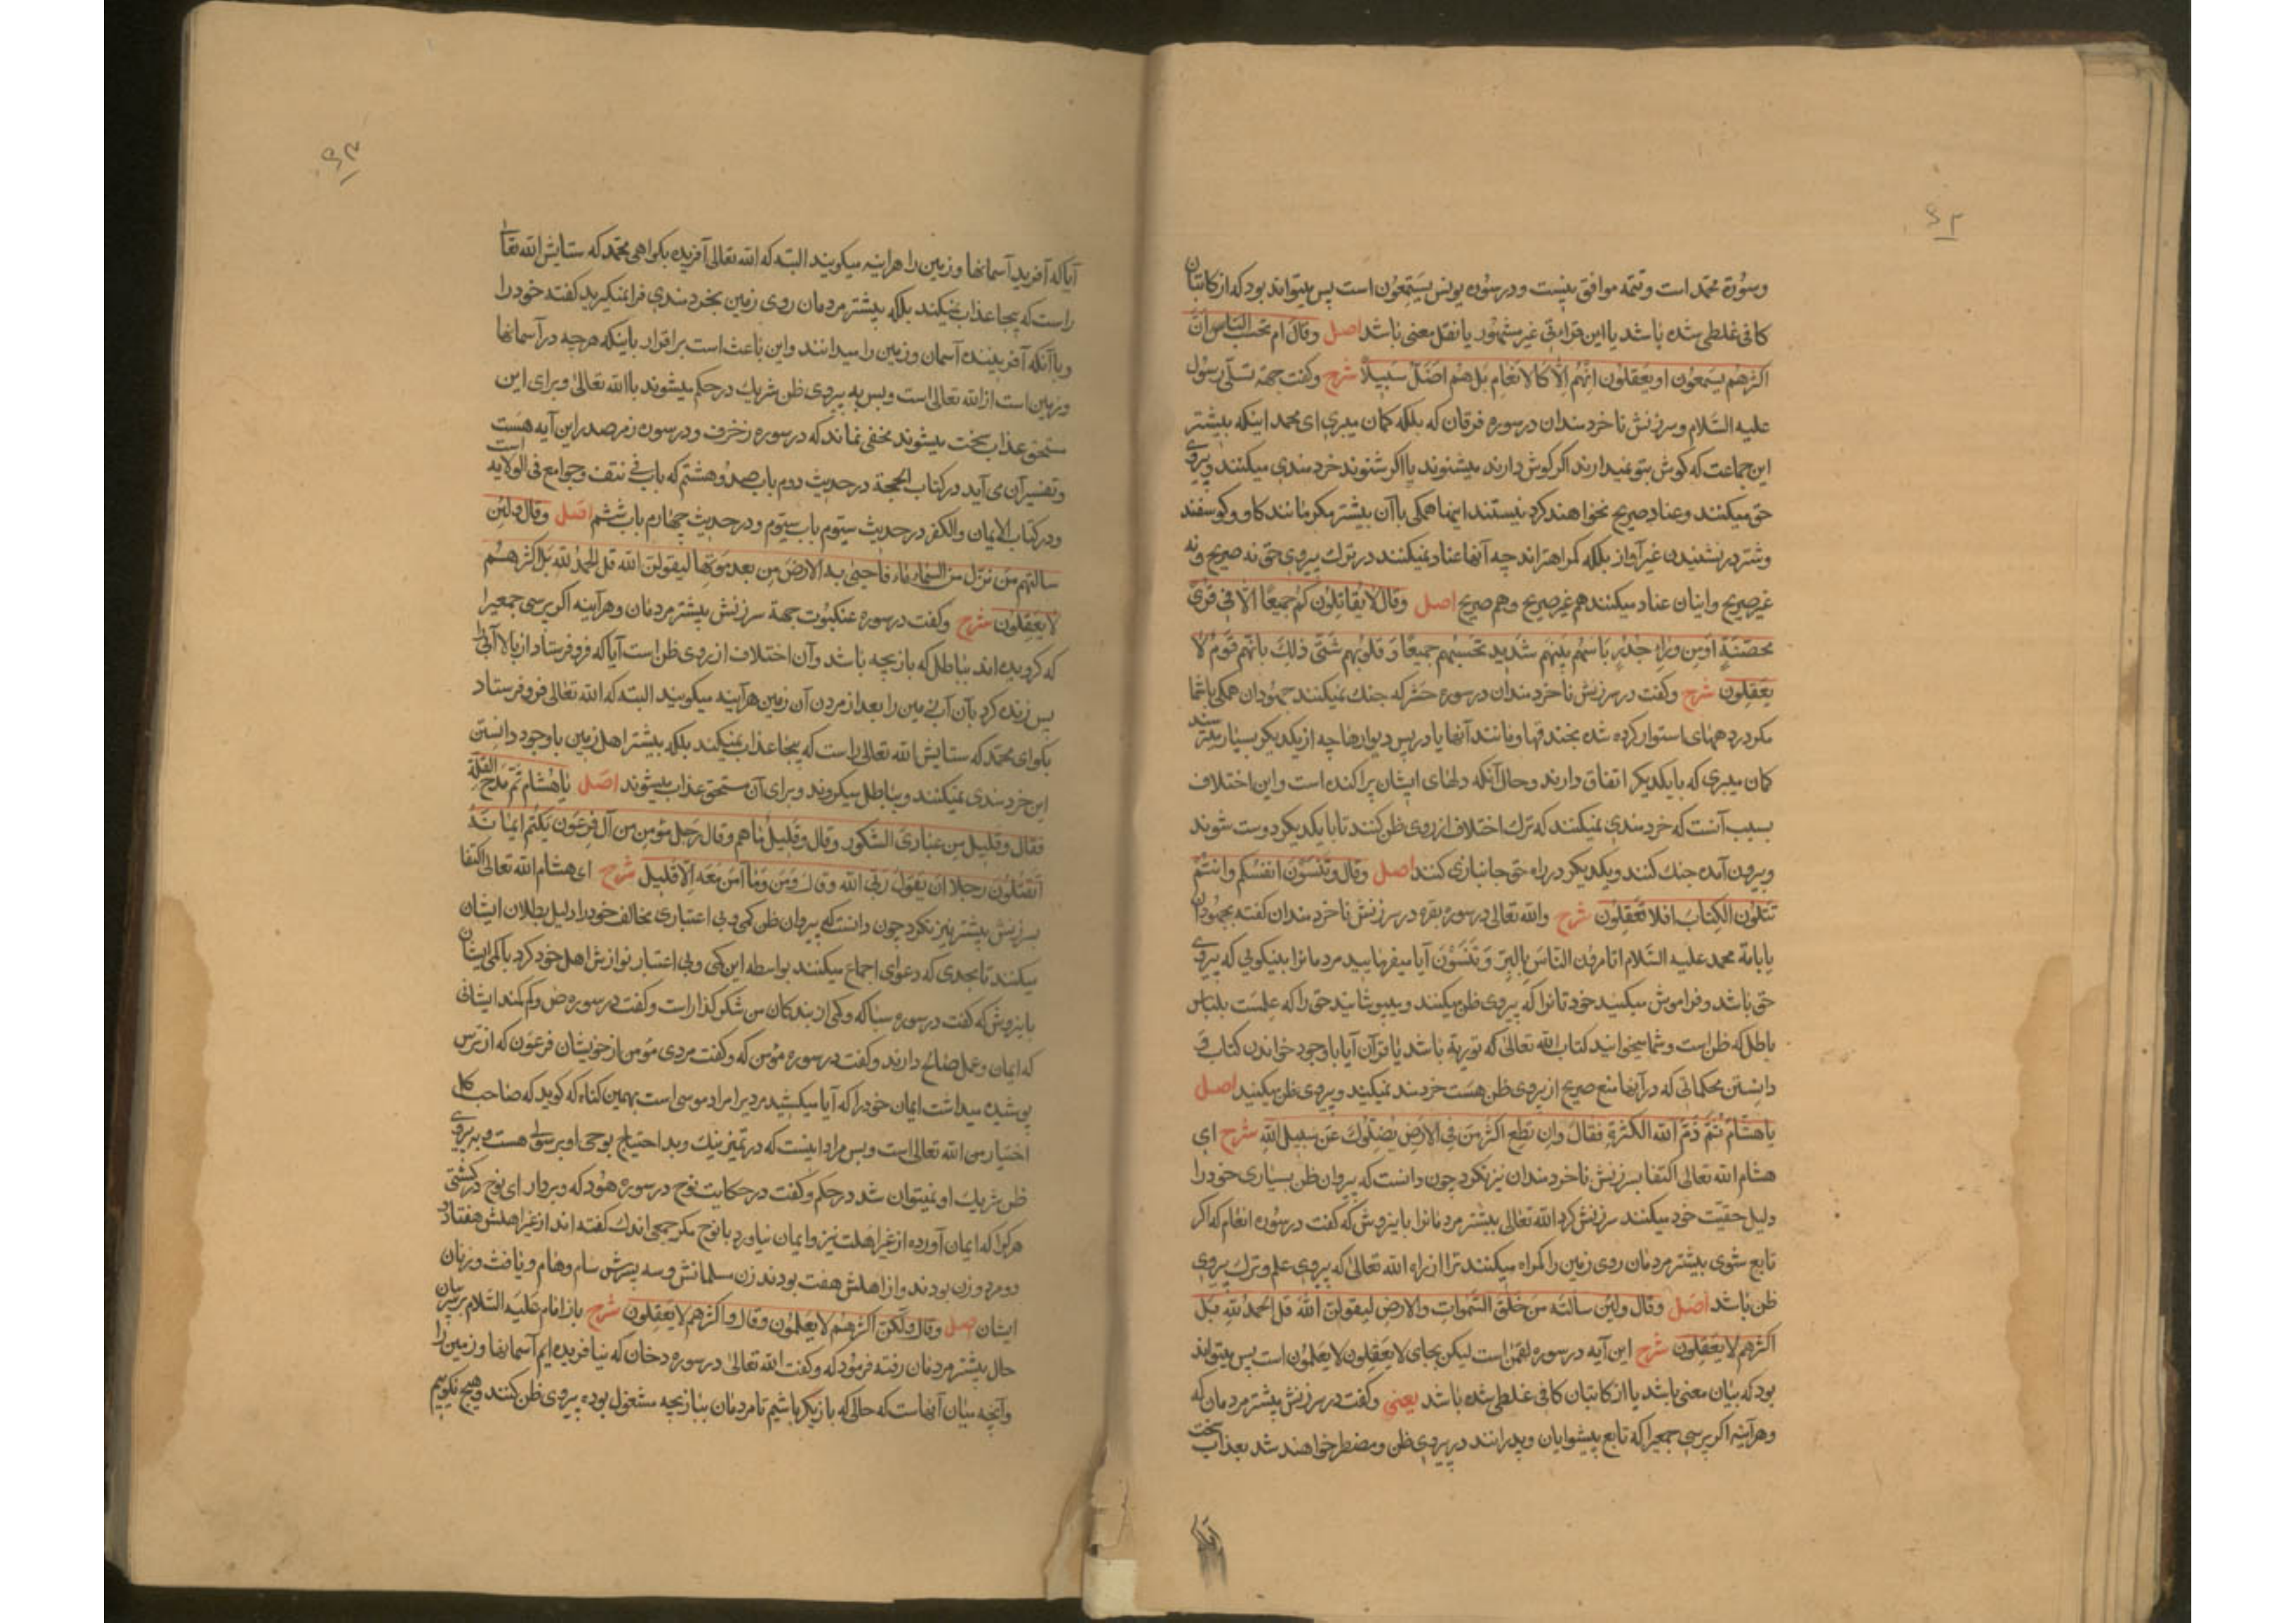 ۶۲
وسورة محمد است و تتمه موافق نیست و در سوره یونس یستمعون است پس میتواند بود که از کاتبان
کافی غلطی شده باشد یا این قراءتی غیر مشهور یا نقل معنی باشد اصل وقال ام تحسب الناس ان
اکثرهم یسمعون او یعقلون انهم الا کالانعام بل هم اضل سبیلا شرح وکفت جهة تسلی رسول
علیه السلام و سرزنش ناخردمندان در سوره فرقان که بلکه کمان میبری ای محمد اینکه بیشتر
این جماعت که کوش بتو میدارند اکر کوش دارند میشنوند یا اکر شنوند خردمندی میکنند و پیروی
حق میکنند و عناد صریح نخواهند کرد نیستند اینها همکی با آن بیشتر مکر مانند کاو و کوسفند
و شتر در نشنیدن غیر آواز بلکه کمراهتراند چه آنها عناد نمیکنند در ترک پیروی حق نه صریح و نه
غیر صریح و اینان عناد میکنند هم غیر صریح و هم صریح اصل وقال لا یقاتلونکم جمیعا الا فی قری
محصنة او من وراء جدر باسهم بینهم شدید تحسبهم جمیعا و قلوبهم شتی ذلک بانهم قوم لا
یعقلون شرح وکفت در سرزنش ناخردمندان در سوره حشر که جنك نمیکنند جهودان همکی با شما
مکر در دههای استوار کرده شده بخندقها و مانند آنها یا در پس دیوارها چه از یکدیکر بسیار میترسند
کمان میبری که با یکدیکر اتفاق دارند و حال آنکه دلهای ایشان پراکنده است و این اختلاف
بسبب آنست که خردمندی نمیکنند که ترك اختلاف از روی ظن کنند تا با یکدیکر دوست شوند
و بیرون آمده جنك کنند و یکدیکر در راه حق جانبازی کنند اصل وقال وتنسون انفسکم وانتم
تتلون الکتاب افلا تعقلون شرح والله تعالی در سوره بقره در سرزنش ناخردمندان کفته بجهودان
یا بامة محمد علیه السلام اتامرون الناس بالبر وتنسون آیا میفرمایید مردمانرا بنیکویی که پیروی
حق باشد و فراموش میکنید خودتانرا که پیروی ظن میکنند و میپوشانید حق را که علمست بلباس
باطل که ظن است و شما میخوانید کتاب الله تعالی که توریة باشد یا قرآن آیا باوجود خواندن کتاب و
دانستن محکماتی که در آنها منع صریح از پیروی ظن هست خردمند نمیکنید و پیروی ظن میکنید اصل
یا هشام ثم ذم الله الکثرة فقال وان تطع اکثر من فی الارض یضلوك عن سبیل الله شرح ای
هشام الله تعالی اکتفا بسرزنش ناخردمندان نیز نکرد چون دانست که پیروان ظن بسیاری خود را
دلیل حقیت خود میکنند سرزنش کرد الله تعالی بیشتر مردمانرا باینروش که کفت در سوره انعام که اکر
تابع شوی بیشتر مردمان روی زمین را کمراه میکنند ترا از راه الله تعالی که پیروی علم و ترك پیروی
ظن باشد اصل وقال ولئن سالتهم من خلق السموات والارض لیقولن الله قل الحمد لله بل
اکثرهم لا یعقلون شرح این آیه در سوره لقمن است لیکن بجای لا یعقلون لا یعلمون است پس میتواند
بود که بیان معنی باشد یا از کاتبان کافی غلطی شده باشد یعنی وکفت در سرزنش بیشتر مردمان که
وهرآینه اکر پرسی جمعیرا که تابع پیشوایان و پدرانند در پیروی ظن و مضطر خواهند شد بعذاب سخت
۶۳
آیا که آفرید آسمانها و زمین را هراینه میکویند البته که الله تعالی آفریده بکو ای محمد که ستایش الله تعالی
راست که بیجا عذاب نمیکند بلکه بیشتر مردمان روی زمین بخردمندی فرا نمیکیرید کفته خود را
و با آنکه آفریننده آسمان و زمین را میدانند و این باعث است بر اقرار باینکه هرچه در آسمانها
و زمین است از الله تعالی است و بس به پیروی ظن شریك در حکم میشوند با الله تعالی و برای این
مستحق عذاب سخت میشوند مخفی نماند که در سوره زخرف و در سوره زمر صدر این آیه هست
و تفسیر آن می آید در کتاب الحجة در حدیث دوم باب صد و هشتم که باب فی نتف و جوامع فی الولایه است
و در کتاب الایمان والکفر در حدیث سیوم باب سیوم و در حدیث چهارم باب ششم اصل وقال ولئن
سالتهم من نزل من السماء ماء فاحیی به الارض من بعد موتها لیقولن الله قل الحمد لله بل اکثرهم
لا یعقلون شرح وکفت در سوره عنکبوت جهة سرزنش بیشتر مردمان و هرآینه اکر پرسی جمعیرا
که کرویده اند بباطل که بازیچه باشد و آن اختلاف از روی ظن است آیا که فرو فرستاد از بالا آبی را
پس زنده کرد بآن آب زمین را بعد از مردن آن زمین هرآینه میکویند البته که الله تعالی فرو فرستاد
بکو ای محمد که ستایش الله تعالی راست که بیجا عذاب نمیکند بلکه بیشتر اهل زمین باوجود دانستن
این خردمندی نمیکنند و بباطل میکروند و برای آن مستحق عذاب میشوند اصل یا هشام ثم مدح القلة
فقال وقلیل من عبادی الشکور وقال وقلیل ما هم وقال رجل مؤمن من آل فرعون یکتم ایمانه
اتقتلون رجلا ان یقول ربی الله وقال ومن وما آمن معه الا قلیل شرح ای هشام الله تعالی اکتفا
بسرزنش بیشتر نیز نکرد چون دانست که پیروان ظن کمی و بی اعتباری مخالف خود را دلیل بطلان ایشان
میکنند تا بحدی که دعوای اجماع میکنند بواسطه این کمی و بی اعتبار نوازش اهل خود کرد با کمی ایشان
باینروش که کفت در سوره سبا که و کمی از بندکان من شکر کذار است وکفت در سوره ص و کم کمند ایشانی
که ایمان و عمل صالح دارند وکفت در سوره مؤمن که وکفت مردی مؤمن از خویشان فرعون که از ترس
پوشیده میداشت ایمان خود را که آیا میکشید مردیرا مراد موسی است بهمین کناه که کوید که صاحب کل
اختیار من الله تعالی است و بس مراد اینست که در تمیز نیك و بد احتیاج بوحی او برسولی هست و به پیروی
ظن شریك او نمیتوان شد در حکم وکفت در حکایت نوح در سوره هود که و بردار ای نوح در کشتی
هر کرا که ایمان آورده از غیر اهلت نیز و ایمان نیاورد با نوح مکر جمعی اندك کفته اند از غیر اهلش هفتاد و
دو مرد و زن بودند و از اهلش هفت بودند زن مسلمانش و سه پسرش سام و هام و یافث و زنان
ایشان اصل وقال ولکن اکثرهم لا یعلمون وقال واکثرهم لا یعقلون شرح باز امام علیه السلام بر سر بیان
حال بیشتر مردمان رفته فرمود که وکفت الله تعالی در سوره دخان که نیافریده ایم آسمانها و زمین را
و آنچه میان آنهاست که حالی که بازیکر باشیم تا مردمان ببازیچه مشغول بوده پیروی ظن کنند و هیچ نکوییم